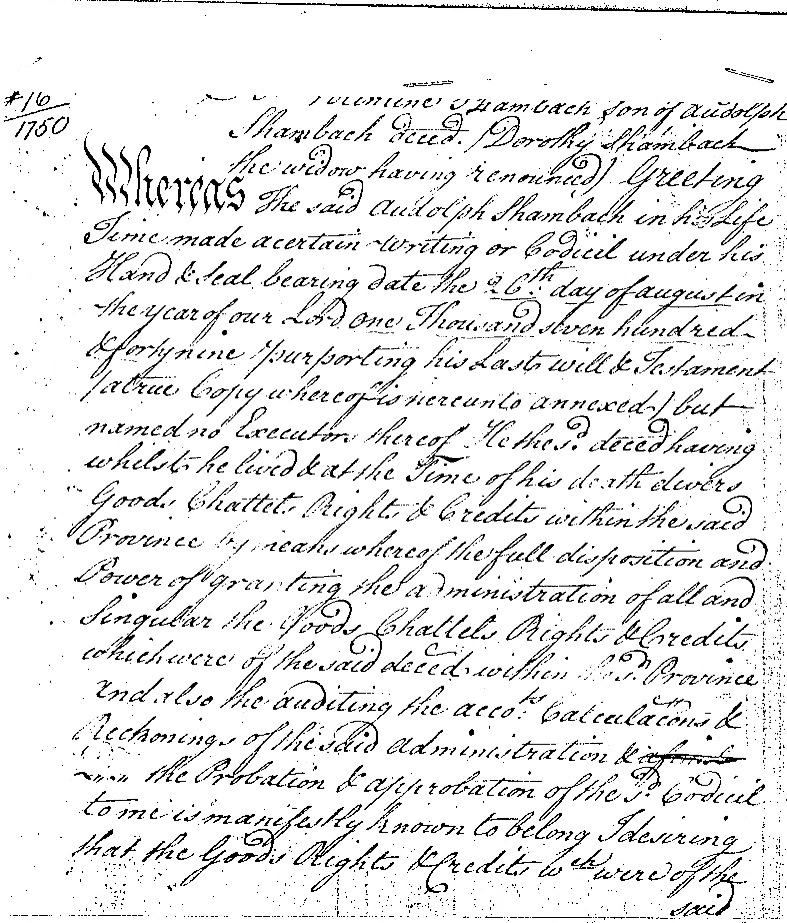 #16
1750
Shambach son of Audolph
Shambach deced. (Dorothy Shambach
the widow having renounced) Greeting
Whereas The said Audolph Shambach in his Life
Time made a certain Writing or Codicil under his
Hand & Seal bearing date the 26th day of august in
the year of our Lord one Thousand seven hundred
& forty nine purporting his Last will & Testament
(a true Copy whereof is hereunto annexed) but
named no Executors thereof He the sd. deced having
whilst he lived & at the Time of his death divers
Goods Chattels Rights & Credits within the said
Province by means whereof the full disposition and
Power of granting the administration of all and
Singular the Goods Chattels Rights & Credits
which were of the said deced within the sd. Province
and also the auditing the accots. Calculacons &
Reckonings of the said administration &
the Probation & approbation of the sd. Codicil
to me is manifestly known to belong I desiring
that the Goods Rights & Credits wch were of the
said